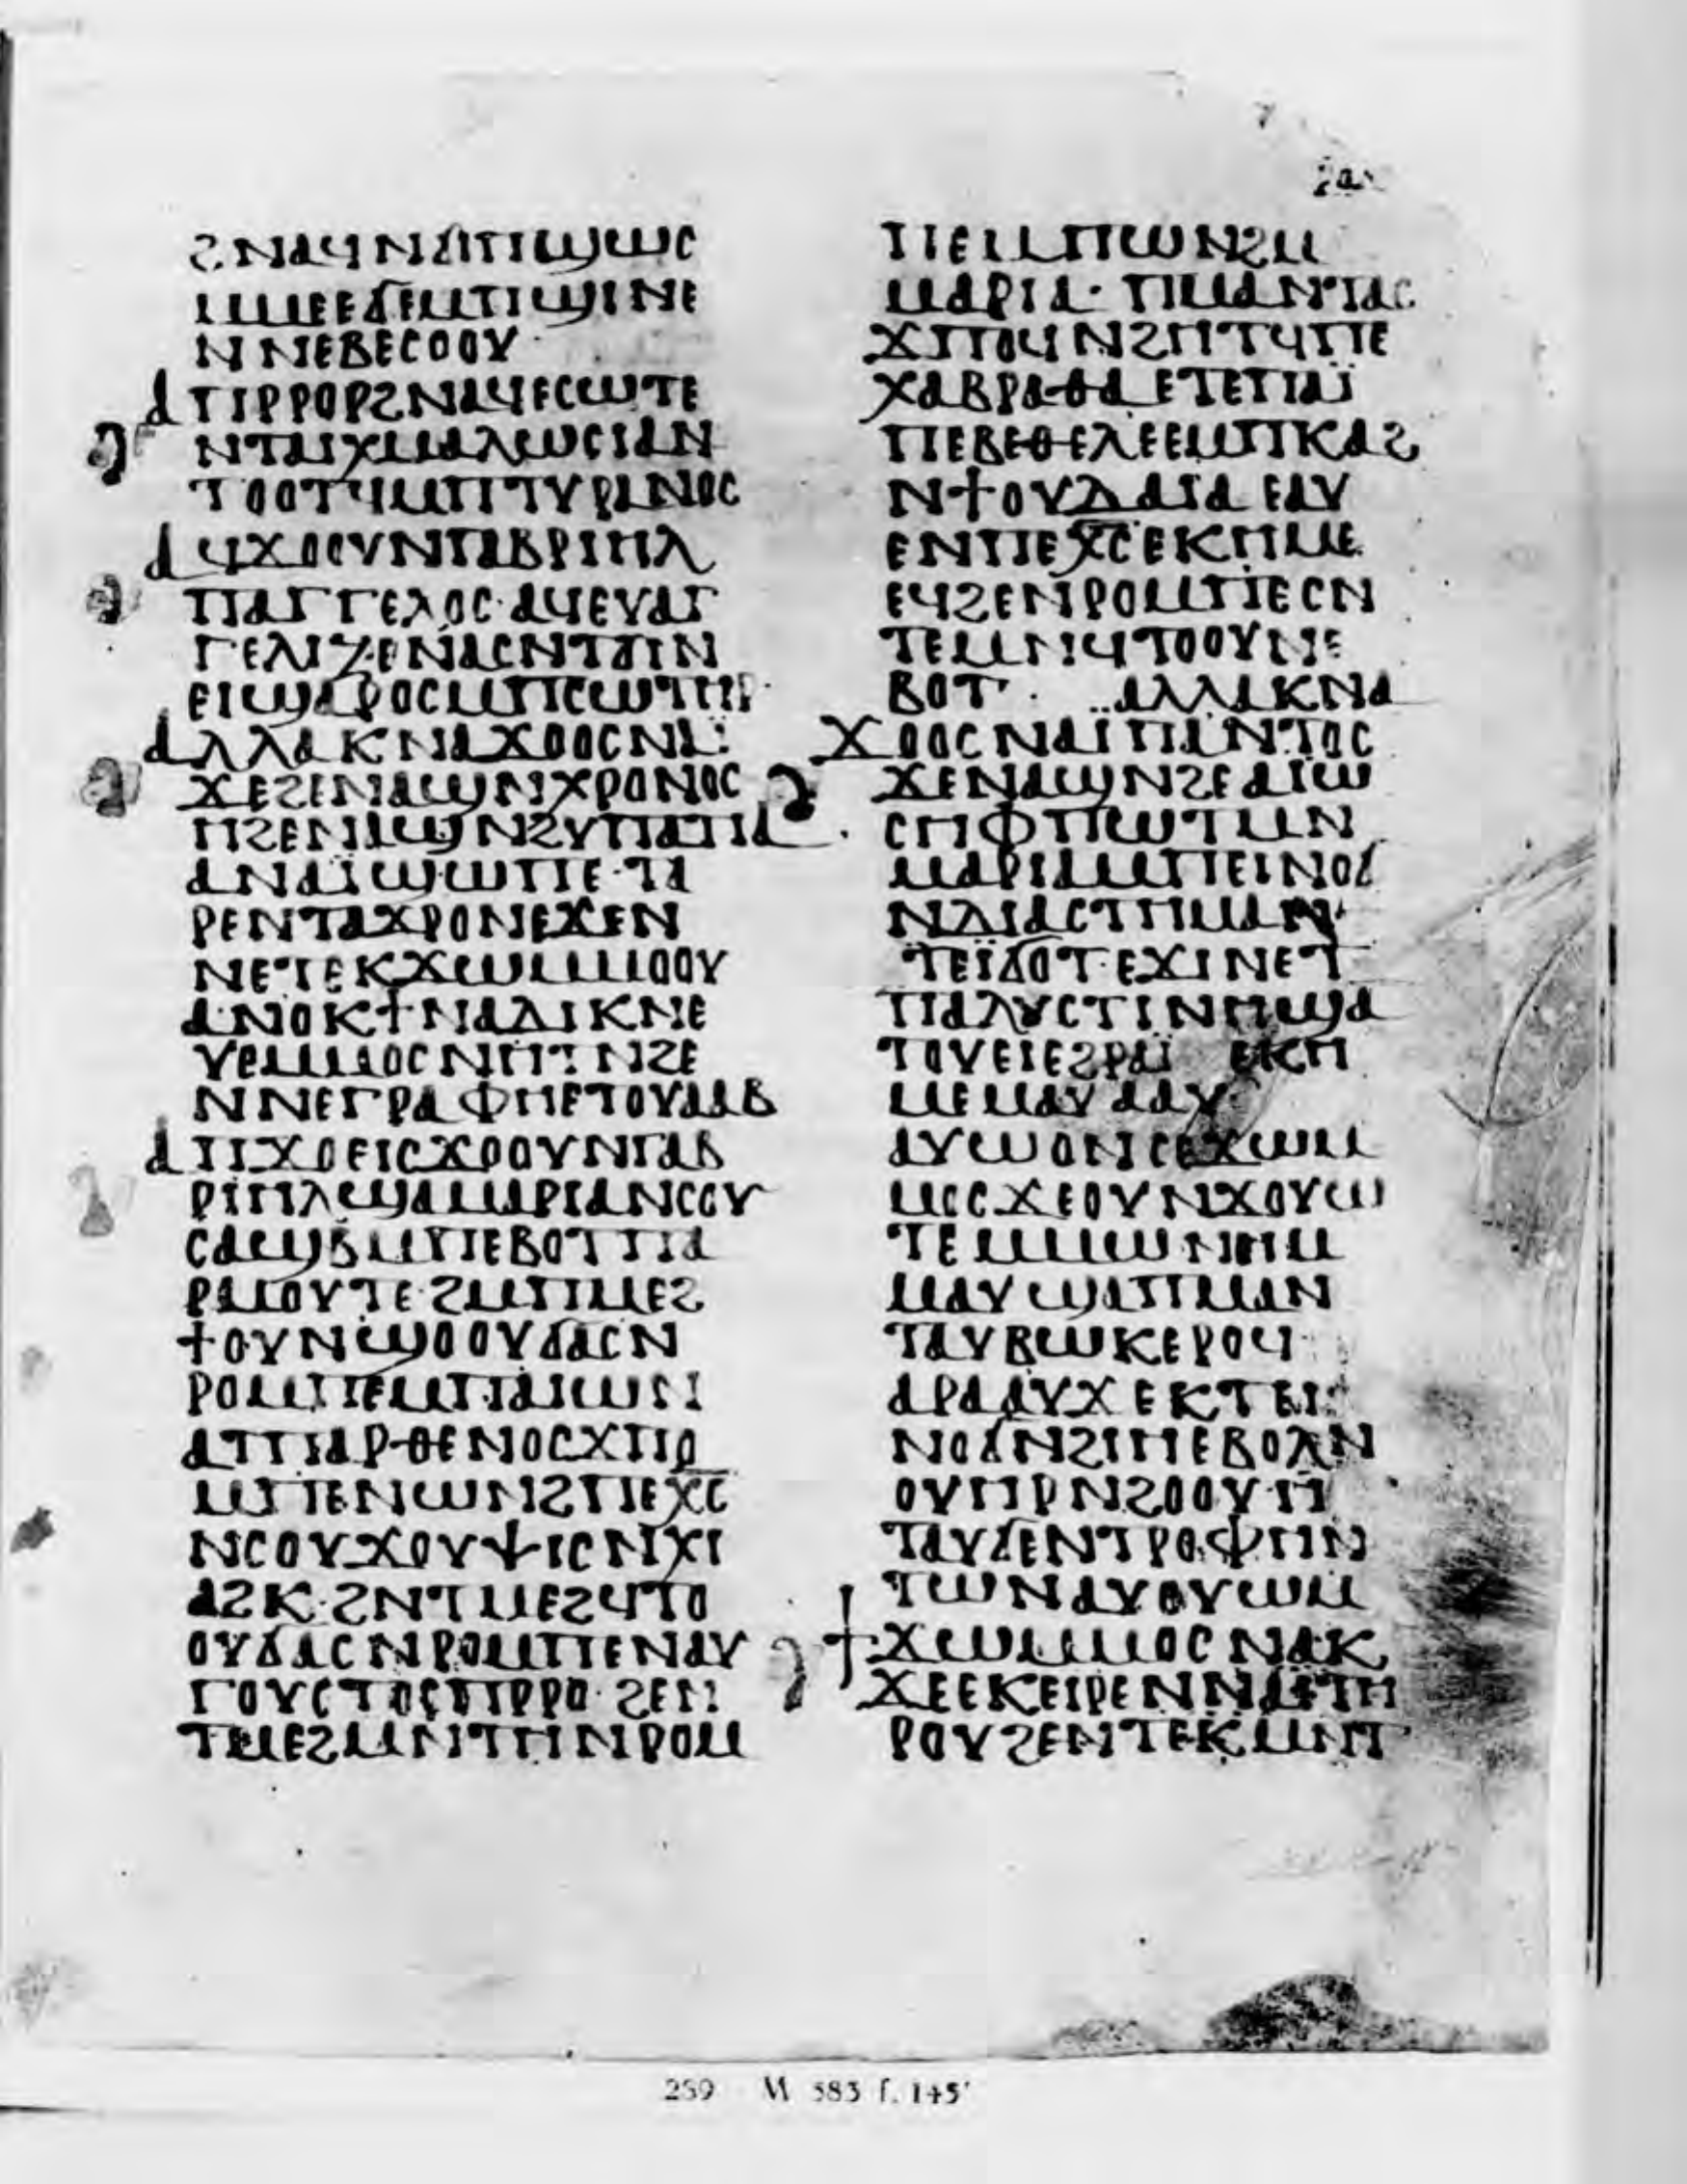 ϩⲛⲁϥⲛϭⲓⲡⲓϣⲱⲥ
ⲙⲙⲉⲉϭⲉⲙⲡⲓϣⲓⲛⲉ
ⲛⲛⲉⲃⲉⲥⲟⲟⲩ
ⲁⲡⲓⲣⲣⲟⲣϩⲛⲁϥⲉⲥⲱⲧⲉ
ⲛⲧⲁⲓⲭⲙⲁⲗⲱⲥⲓⲁⲛ
ⲧⲟⲟⲧϥⲙⲡⲓⲧⲩⲣⲁⲛⲟⲥ
ⲁϥϫⲟⲟⲩⲛⲅⲁⲃⲣⲓⲏⲗ
ⲡⲁⲅⲅⲉⲗⲟⲥ·ⲁϥⲉⲩⲁⲅ
ⲅⲉⲗⲓⲍⲉⲛⲁⲥⲛⲧϭⲓⲛ
ⲉⲓϣⲁⲣⲟⲥⲙⲡⲥⲱⲧⲏⲣ
ⲁⲗⲗⲁⲕⲛⲁϫⲟⲟⲥⲛⲁⲓ
ϫⲉϩⲉⲛⲁϣⲛⲭⲣⲟⲛⲟⲥ
ⲏϩⲉⲛⲁϣⲛϩⲩⲡⲁⲧⲓⲁ
ⲁⲛⲁⲓϣⲱⲡⲉ·ⲧⲁ
ⲣⲉⲛⲧⲁϫⲣⲟⲛⲉϫⲉⲛ
ⲛⲉⲧⲉⲕϫⲱⲙⲙⲟⲟⲩ
ⲁⲛⲟⲕϯⲛⲁⲇⲓⲕⲛⲉ
ⲩⲉⲙⲙⲟⲥⲛⲏⲧⲛϩⲉ
ⲛⲛⲉⲅⲣⲁⲫⲏⲉⲧⲟⲩⲁⲁⲃ
ⲁⲡϫⲟⲉⲓⲥϫⲟⲟⲩⲛⲅⲁⲃ
ⲣⲓⲏⲗϣⲁⲙⲁⲣⲓⲁⲛⲥⲟⲩ
ⲥⲁϣϥⲙⲡⲉⲃⲟⲧⲡⲁ
ⲣⲙⲟⲩⲧⲉ·ϩⲙⲡⲙⲉϩ
ϯⲟⲩⲛϣⲟⲟⲩϭⲁⲥⲛ
ⲣⲟⲙⲡⲉⲙⲡⲁⲓⲱⲛ
ⲁⲧⲡⲁⲣⲑⲉⲛⲟⲥϫⲡⲟ
ⲙⲡⲉⲛⲱⲛϩⲡⲉⲭⲥ
ⲛⲥⲟⲩϫⲟⲩⲯⲓⲥⲛⲭⲓ
ⲁϩⲕ·ϩⲛⲧⲙⲉϩϥⲧⲟ
ⲟⲩϭⲁⲥⲛⲣⲟⲙⲡⲉⲛⲁⲩ
ⲅⲟⲩⲥⲧⲟⲥⲡⲣⲣⲟ·ϩⲉⲛ
ⲧⲙⲉϩⲙⲛⲧⲏⲛⲣⲟⲙ
ⲡⲉⲙⲡⲱⲛϩⲙ
ⲙⲁⲣⲓⲁ·ⲡⲙⲁⲛⲧⲁⲥ
ϫⲡⲟϥⲛϩⲏⲧϥⲡⲉ
ⲭⲁⲃⲣⲁⲑⲁⲉⲧⲉⲧⲁⲓ
ⲡⲉⲃⲉⲑⲉⲗⲉⲉⲙⲡⲕⲁϩ
ⲛϯⲟⲩⲇⲁⲓⲁⲉⲁⲩ
ⲉⲛⲡⲉⲭⲥⲉⲕⲏⲙⲉ
ⲉϥϩⲉⲛⲣⲟⲙⲡⲉⲥⲛ
ⲧⲉⲙⲛϥⲧⲟⲟⲩⲛⲉ
ⲃⲟⲧ· ⲁⲗⲗⲁⲕⲛⲁ
ϫⲟⲟⲥⲛⲁⲓⲡⲁⲛⲧⲟⲥ
ϫⲉⲛⲁϣⲛϩⲉⲁⲓⲱ
ⲥⲏⲫⲡⲱⲧⲙⲛ
ⲙⲁⲣⲓⲁⲙⲡⲉⲓⲛⲟϭ
ⲛⲇⲓⲁⲥⲧⲏⲙⲁⲛ
ⲧⲉⲓϭⲟⲧ·ⲉϫⲓⲛⲉⲧ
ⲡⲁⲗⲩⲥⲧⲓⲛⲏϣⲁ
ⲧⲟⲩⲉⲓⲉϩⲣⲁⲓ ⲉⲕⲏ
ⲙⲉⲙⲁⲩⲁⲁⲩ
ⲁⲩⲱⲟⲛⲥⲉϫⲱⲙ
ⲙⲟⲥϫⲉⲟⲩⲛϫⲟⲩⲱ
ⲧⲉⲙⲙⲱⲛⲏⲙ
ⲙⲁⲩϣⲁⲡⲙⲁⲛ
ⲧⲁⲩⲃⲱⲕⲉⲣⲟϥ
ⲁⲣⲁⲁⲩϫⲉⲕⲧⲉⲓ
ⲛⲟϭⲛϩⲓⲏⲉⲃⲟⲗⲛ
ⲟⲩⲏⲣⲛϩⲟⲟⲩⲏ
ⲧⲁⲩϭⲉⲛⲧⲣⲟⲫⲏⲛ
ⲧⲱⲛⲁⲩⲟⲩⲱⲙ
ϯϫⲱⲙⲙⲟⲥⲛⲁⲕ
ϫⲉⲉⲕⲉⲓⲣⲉⲛⲛⲁⲓⲧⲏ
ⲣⲟⲩϩⲉⲛⲧⲉⲕⲙⲛⲧ
259 M 583 f. 145ʳ